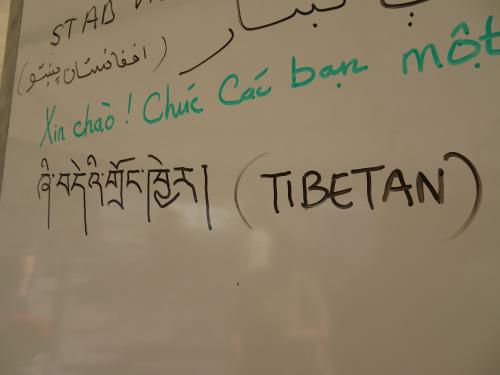 STAR
(افغانستان پښتو)
Xin chào! Chúc Các bạn một
ཞི་བདེའི་གྲོང་ཁྱེར། (TIBETAN)